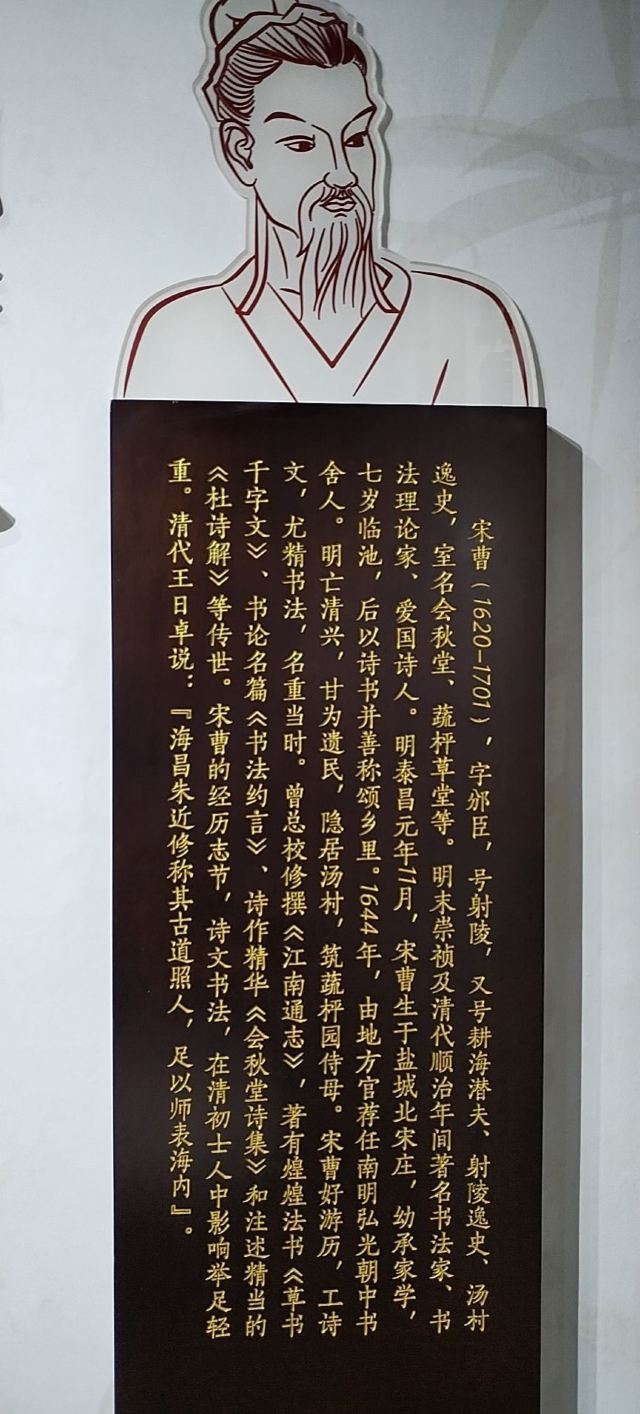 宋曹（1620—1701），字邠臣，号射陵，又号耕海潜夫、射陵逸史、汤村
逸史，室名会秋堂、蔬枰草堂等。明末崇祯及清代顺治年间著名书法家、书
法理论家、爱国诗人。明泰昌元年11月，宋曹生于盐城北宋庄，幼承家学，
七岁临池，后以诗书并善称颂乡里。1644年，由地方官荐任南明弘光朝中书
舍人。明亡清兴，甘为遗民，隐居汤村，筑蔬枰园侍母。宋曹好游历，工诗
文，尤精书法，名重当时。曾总校修撰《江南通志》，著有煌煌法书《草书
千字文》、书论名篇《书法约言》、诗作精华《会秋堂诗集》和注述精当的
《杜诗解》等传世。宋曹的经历志节，诗文书法，在清初士人中影响举足轻
重。清代王日卓说：『海昌朱近修称其古道照人，足以师表海内』。